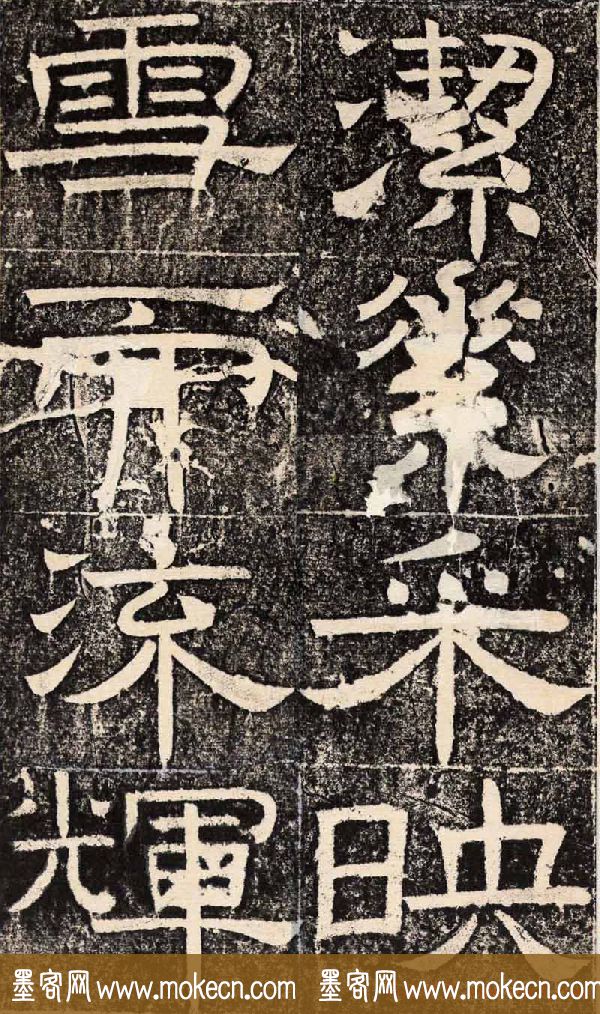 潔采映
雪流輝
墨客网 www.mokecn.com 墨客网 www.mokecn.com